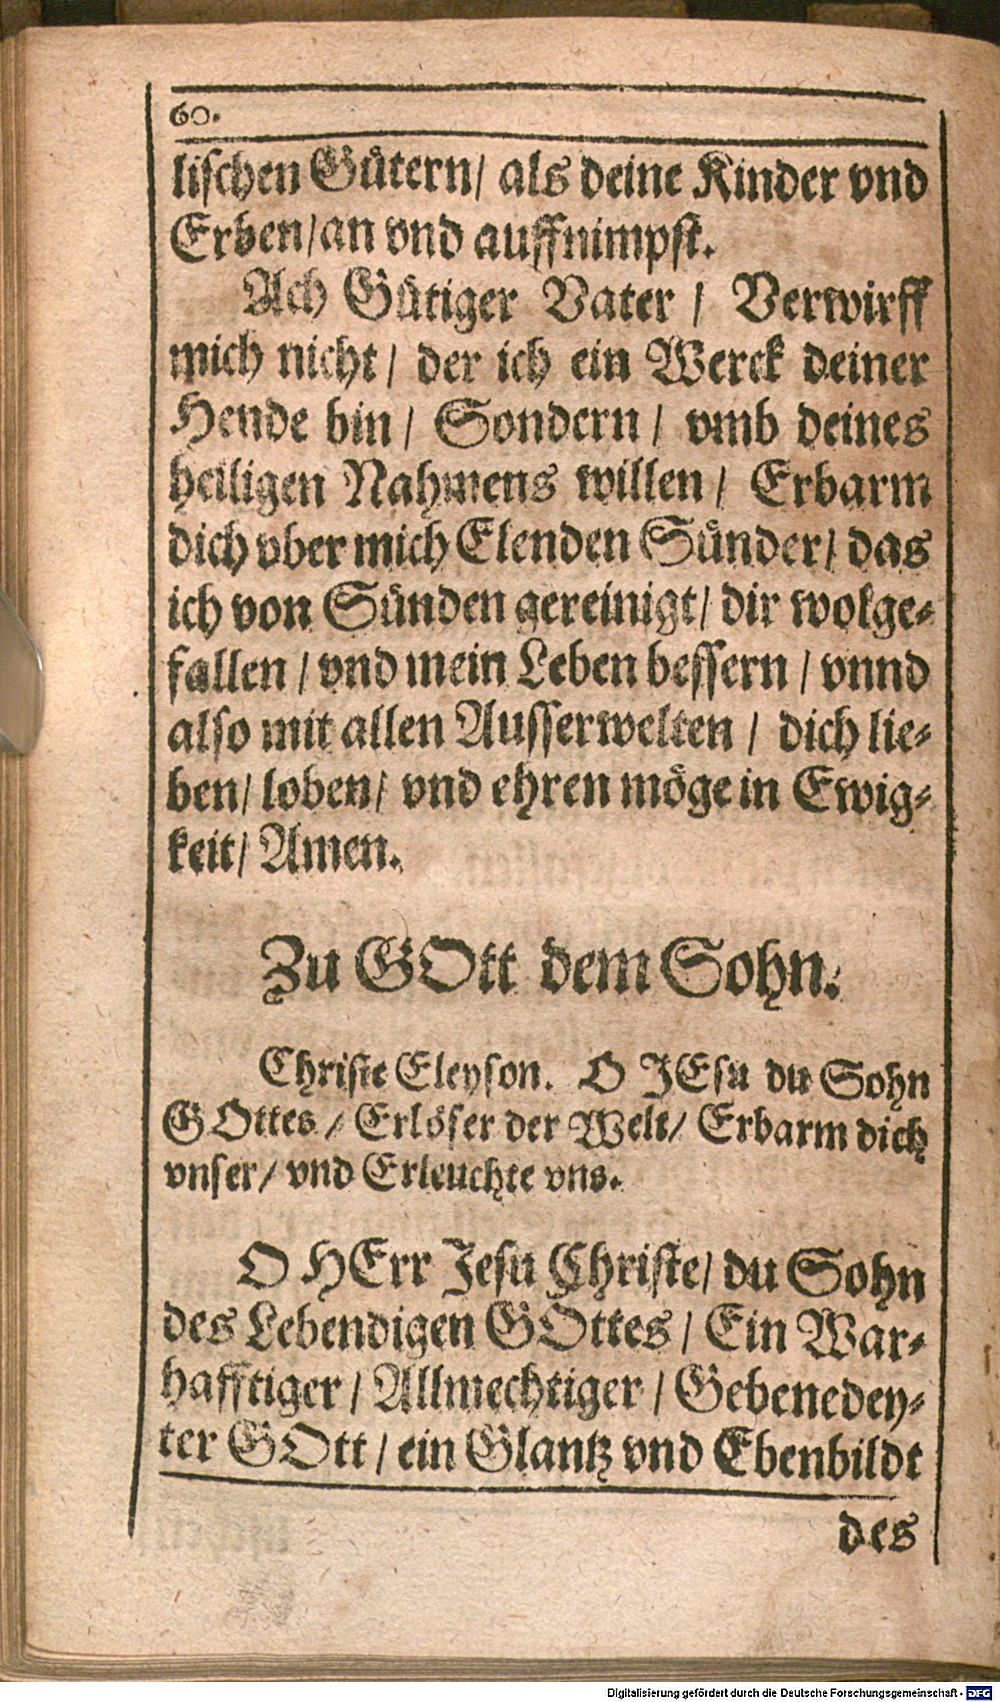 60.
lischen Gütern/ als deine Kinder vnd
Erben/an vnd auffnimpst.
Ach Gütiger Vater / Verwirff
mich nicht/ der ich ein Werck deiner
Hende bin/ Sondern/ vmb deines
heiligen Nahmens willen/ Erbarm
dich vber mich Elenden Sünder/ das
ich von Sünden gereinigt/ dir wolge-
fallen / vnd mein Leben bessern / vnnd
also mit allen Ausserwelten / dich lie-
ben/ loben/ vnd ehren möge in Ewig-
keit/ Amen.
Zu GOtt dem Sohn.
Christe Eleyson. O JEsu du Sohn
GOttes / Erlöser der Welt/ Erbarm dich
vnser/ vnd Erleuchte vns.
O HErr Jesu Christe/ du Sohn
des Lebendigen GOttes / Ein War-
hafftiger / Allmechtiger / Gebenedey-
ter GOtt / ein Glantz vnd Ebenbildt
des
Digitalisierung gefördert durch die Deutsche Forschungsgemeinschaft - DFG